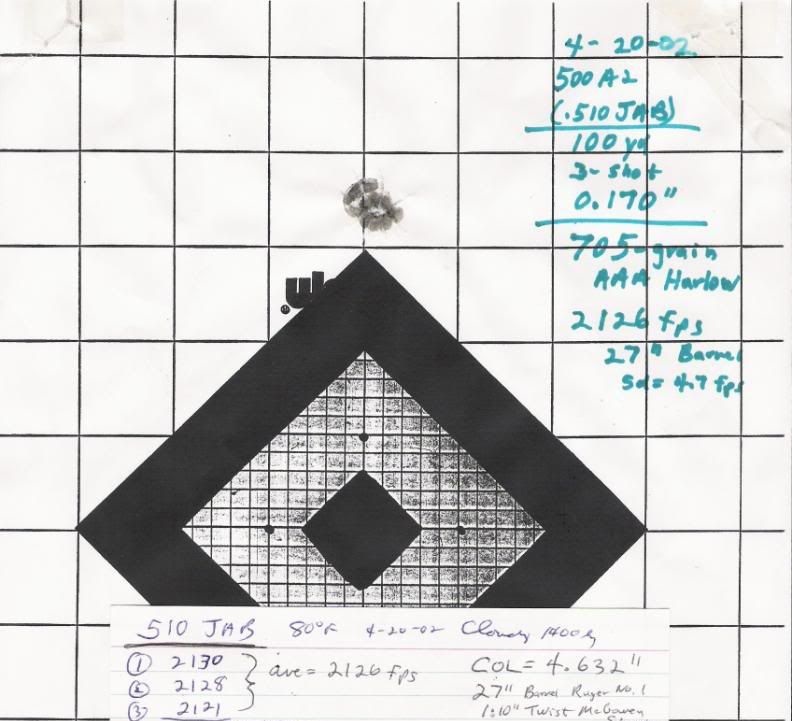 4-20-02
500 A2
(.510 JAB)
100 yd
3-shot
0.170"
705-grain
AAA Harlow
2126 fps
27" Barrel
Sd = 4.7 fps
510 JAB 80°F 4-20-02 Cloudy
① 2130
② 2128
③ 2121
ave = 2126 fps
COL = 4.632"
27" Barrel Ruger No. 1
1:10" Twist McGowen